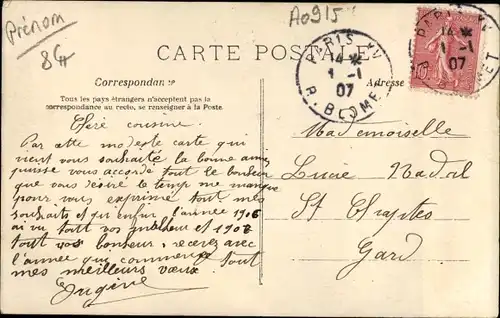 Prénom
8€
A0915
CARTE POSTALE
Correspondance
Adresse
Tous les pays étrangers n'acceptent pas la
correspondance au recto, se renseigner à la Poste
PARIS XV
14 *
1 -1
07
R. BLOMET
PARIS XV
14 *
1 -1
07
R. BLOMET
10
Chère cousine
Par cette modeste carte qui
vient vous souhaité la bonne année
puisse vous accordé tout le bonheur
que vous désiré le temp me manque
pour vous exprimé tout mes
souhaits et qui enfin l'année 1906
ai vu tout vos malheur et 1907
tout vos bonheur, recevez avec
l'année qui commence tout
mes meilleurs vœux
Eugène
Mademoiselle
Lucie Nadal
St Chaptes
Gard